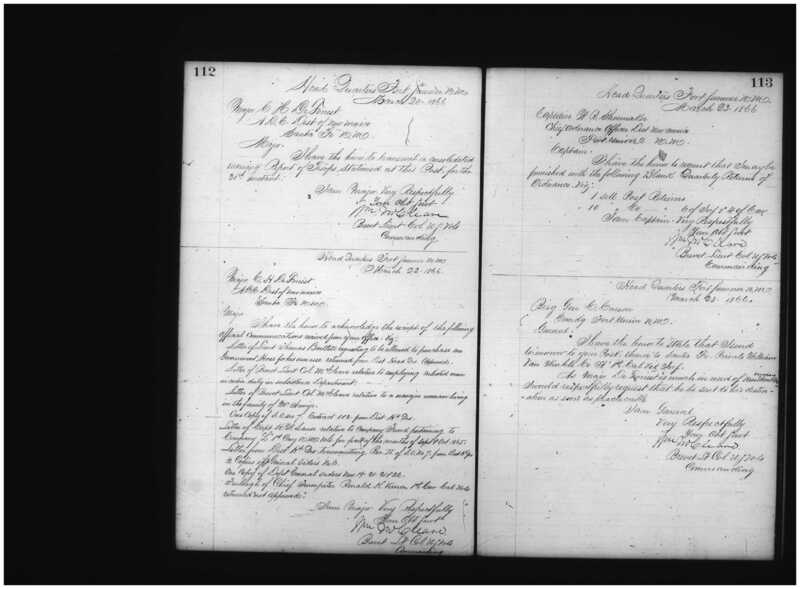 112
Head Quarters Fort Sumner N.M.
March 20 1866
Major C. H. DeForrest
A.A.G. Dist of New Mexico
Santa Fe N.M.
Major.
I have the honor to transmit a consolidated
Report of Troops stationed at this Post, for the
I am Major Very Respectfully
Your Obt Servt
Wm McCleave
Brevet Lieut Col US Vols
Commanding
Head Quarters Fort Sumner N.M.
March 22 1866.
Major C. H. DeForrest
A.A.G. Dist of New Mexico
Santa Fe N.M.
Major
I have the honor to acknowledge the receipt of the following
Official Communications received from your Office. Viz:
Letter of Lieut Thomas requesting to be allowed to purchase
Government Horse for his own use returned from Dist Head Qrs Approved.
Letter of Brevet Lieut Col McCleave relative to employing enlisted men
on extra duty in Subsistence Department.
Letter of Brevet Lieut Col McCleave relative to a woman living
in the family of
One Copy of from Dist Hd Qrs.
Letter of Capt relative to Company Fund pertaining to
Company 1st Cavy N.M. Vols for part of the months of Sept & Oct 1865.
Letter from Dist Hd Qrs
2 Copies of General Orders No 3.
One Copy of Dept General Orders Nos 19. 20. 21 & 22.
of Chief Trumpeter Cal Vols
returned not approved.
I am Major Very Respectfully
Your Obt Servt
Wm McCleave
Brevet Lt Col US Vols
Commanding
113
Head Quarters Fort Sumner N.M.
March 23 1866
Captain W. R. Shoemaker
Chief Ordnance Officer Dist New Mexico
Fort Union N.M.
Captain
I have the honor to request that I may be
furnished with the following Blank Quarterly Returns of
Ordnance. Viz:
1 sett Post Returns
10 Do of Inf & of Cav
I am Captain Very Respectfully
Your Obt Servt
Wm McCleave
Brevet Lieut Col US Vols
Commanding
Head Quarters Fort Sumner N.M.
March 23 1866.
Brig Gen C. Carson
Comdg Fort Union N.M.
General.
I have the honor to state that I send
tomorrow to your Post thence to Santa Fe Private William
Van Co 1st Cal Vol Inf.
As Major DeForrest is much in need of
I would respectfully request that he be sent to his destin-
ation as soon as practicable
I am General
Very Respectfully
Your Obt Servt
Wm McCleave
Brevet Lt Col US Vols
Commanding